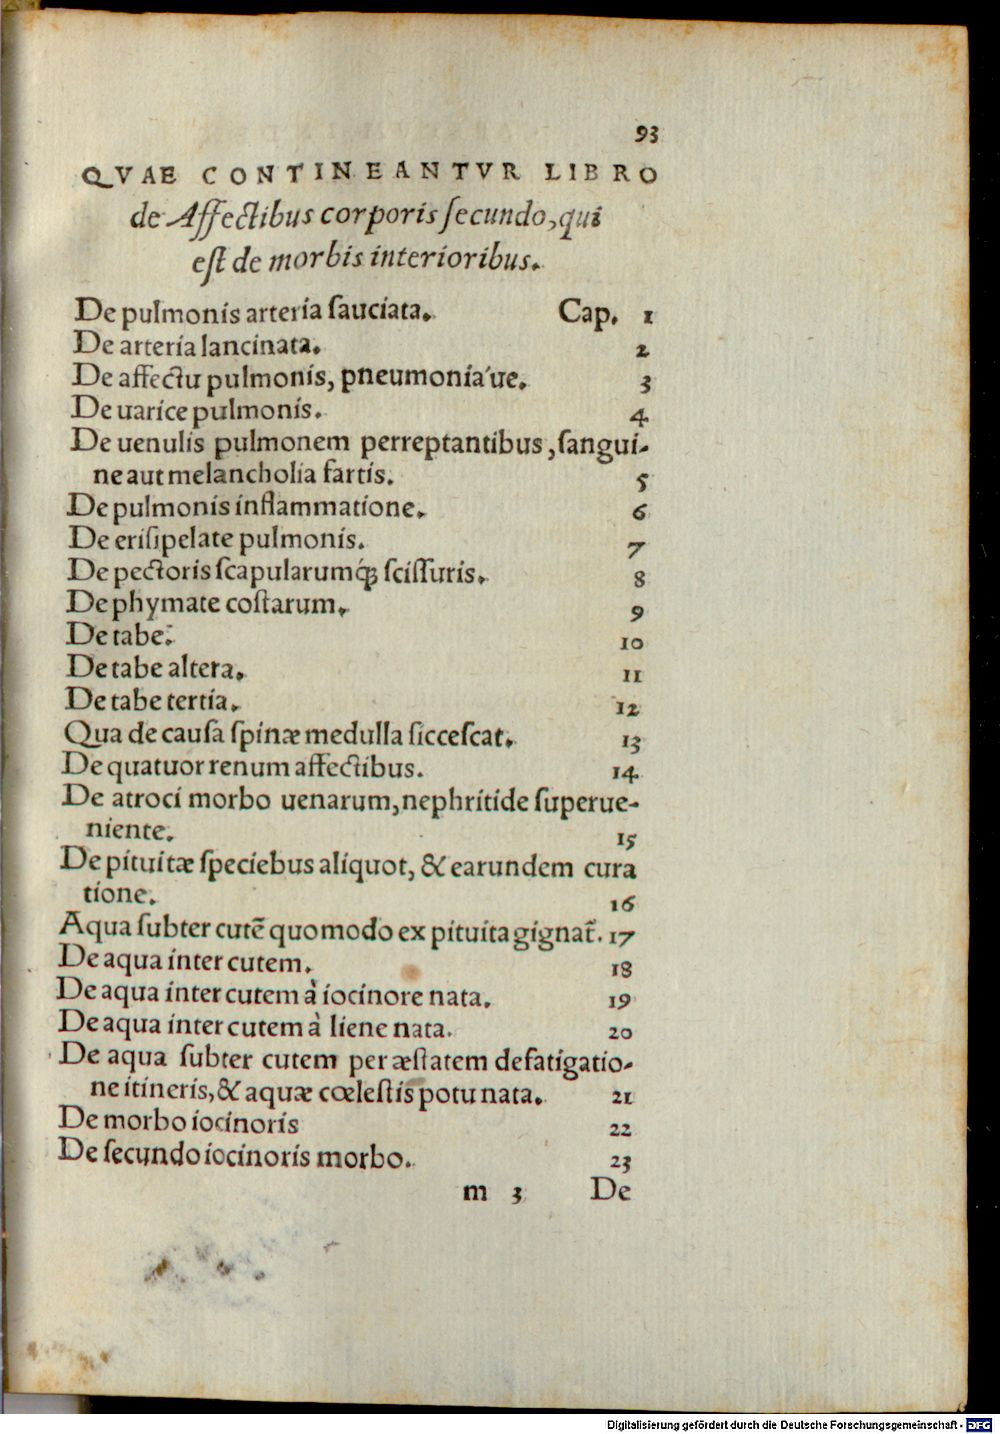 93
QVAE CONTINEANTVR LIBRO
de Affectibus corporis ſecundo, qui
eſt de morbis interioribus.
De pulmonis arteria ſauciata. Cap. 1
De arteria lancinata. 2
De affectu pulmonis, pneumonia´ue. 3
De uarice pulmonis. 4
De uenulis pulmonem perreptantibus, ſangui-
ne aut melancholia fartis. 5
De pulmonis inflammatione. 6
De eriſipelate pulmonis. 7
De pectoris ſcapularumq́ꝫ ſciſſuris. 8
De phymate coſtarum. 9
De tabe. 10
De tabe altera. 11
De tabe tertia. 12
Qua de cauſa ſpinæ medulla ſicceſcat. 13
De quatuor renum affectibus. 14
De atroci morbo uenarum, nephritide ſuperue-
niente. 15
De pituitæ ſpeciebus aliquot, & earundem cura
tione. 16
Aqua ſubter cutẽ quomodo ex pituita gignat᷑. 17
De aqua inter cutem. 18
De aqua inter cutem à iocinore nata. 19
De aqua inter cutem à liene nata. 20
De aqua ſubter cutem per æſtatem defatigatio-
ne itineris, & aquæ cœleſtis potu nata. 21
De morbo iocinoris 22
De ſecundo iocinoris morbo. 23
m 3 De
Digitalisierung gefördert durch die Deutsche Forschungsgemeinschaft - DFG